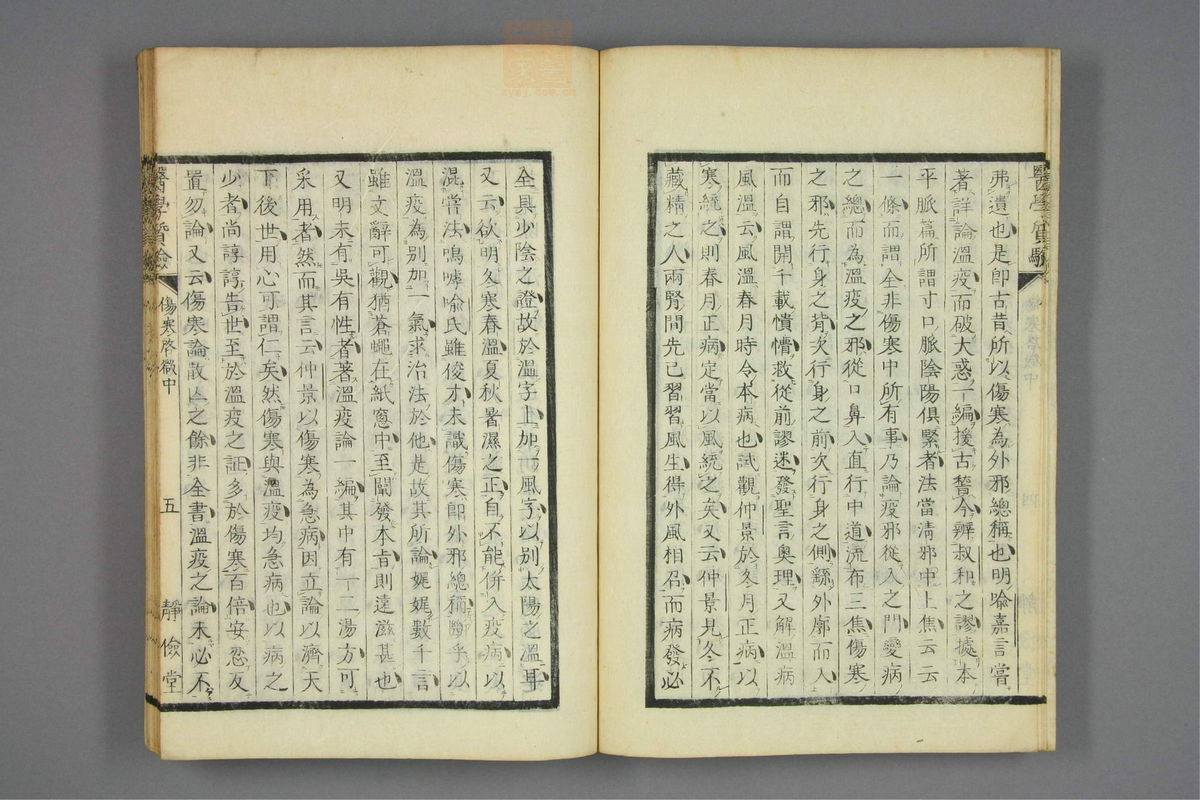 弗遺也是卽古昔所以傷寒為外邪總稱也明喩嘉言嘗
著詳論溫疫而破大惑一編援古誓今辨叔和之謬據本
平脈篇所謂寸口脈陰陽俱緊者法當淸邪中上焦云云
一條而謂全非傷寒中所有事乃論疫邪從入之門變病
之總而為溫疫之邪從口鼻入直行中道流布三焦傷寒
之邪先行身之背次行身之前次行身之側繇外廓而入
而自謂開千載憒懵救從前謬迷發聖言奧理又解溫病
風溫云風溫春月時令本病也試觀仲景於冬月正病以
寒統之則春月正病定當以風統之矣又云仲景見冬不
藏精之人兩腎間先已習習風生得外風相召而病發必
全具少陰之證故於溫字上加一風字以別太陽之溫耳
又云欲明冬寒春溫夏秋暑濕之正自不能倂入疫病以
混嘗法嗚嘑喩氏雖俊才未識傷寒卽外邪總稱斷乎以
溫疫為別加一氣求治法於他是故其所論娓娓數千言
雖文辭可觀猶蒼蠅在紙窓中至闡發本旨則遠滋甚也
又明末有吳有性者著溫疫論一編其中有一二湯方可
采用者然而其言云仲景以傷寒為急病因立論以濟天
下後世用心可謂仁矣然傷寒與溫疫均急病也以病之
少者尚諄諄告世至於溫疫之証多於傷寒百倍安忍反
置勿論又云傷寒論散亾之餘非全書溫疫之論未必不
醫學質驗
傷寒啓微中
五
靜儉堂